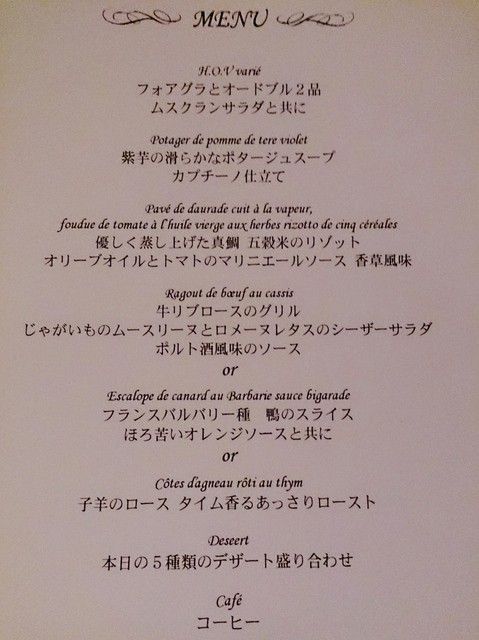 MENU
H.O.V varié
フォアグラとオードブル２品
ムスクランサラダと共に
Potager de pomme de tere violet
紫芋の滑らかなポタージュスープ
カプチーノ仕立て
Pavé de daurade cuit à la vapeur,
foudue de tomate à l'huile vierge aux herbes rizotto de cinq céréales
優しく蒸し上げた真鯛 五穀米のリゾット
オリーブオイルとトマトのマリニエールソース 香草風味
Ragout de bœuf au cassis
牛リブロースのグリル
じゃがいものムースリーヌとロメーヌレタスのシーザーサラダ
ポルト酒風味のソース
or
Escalope de canard au Barbarie sauce bigarade
フランスバルバリー種　鴨のスライス
ほろ苦いオレンジソースと共に
or
Côtes d'agneau rôti au thym
子羊のロース タイム香るあっさりロースト
Deseert
本日の５種類のデザート盛り合わせ
Café
コーヒー